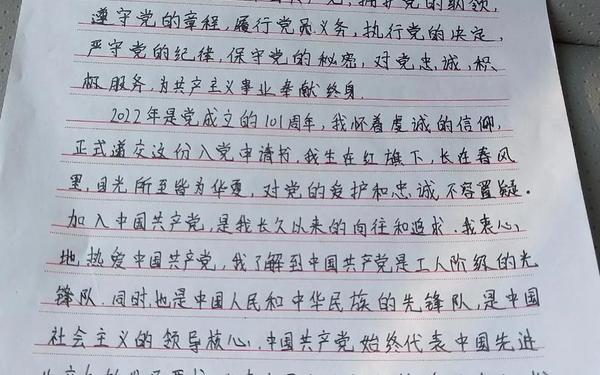 拥护党的纲领,
遵守党的章程,履行党员义务,执行党的决定,
严守党的纪律,保守党的秘密,对党忠诚,积
极服务,为共产主义事业奉献终身.
2022年是党成立的101周年,我怀着虔诚的信仰,
正式递交这份入党申请书,我生在红旗下,长在春风
里,目光所至皆为华夏,对党的爱护和忠诚不容置疑.
加入中国共产党,是我长久以来的向往和追求.我衷心
地热爱中国共产党,我了解到中国共产党是工人阶级的先
锋队.同时,也是中国人民和中华民族的先锋队,是中国
社会主义的领导核心.中国共产党始终代表中国先进